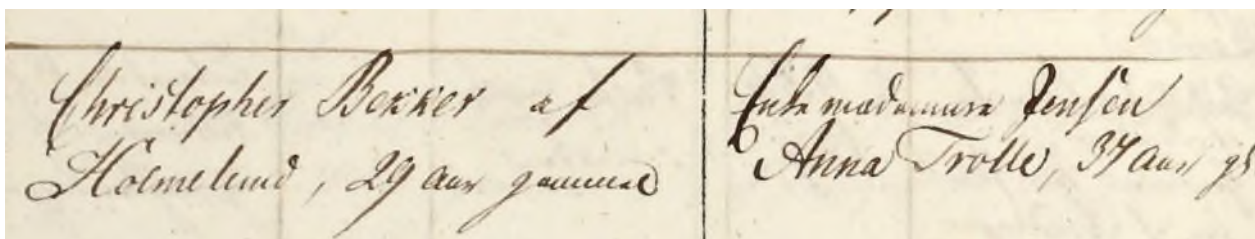 Christopher Bekker af
Holmelund, 29 Aar gammel
Enke madamme Jensen
Anna Trolle, 37 Aar gl